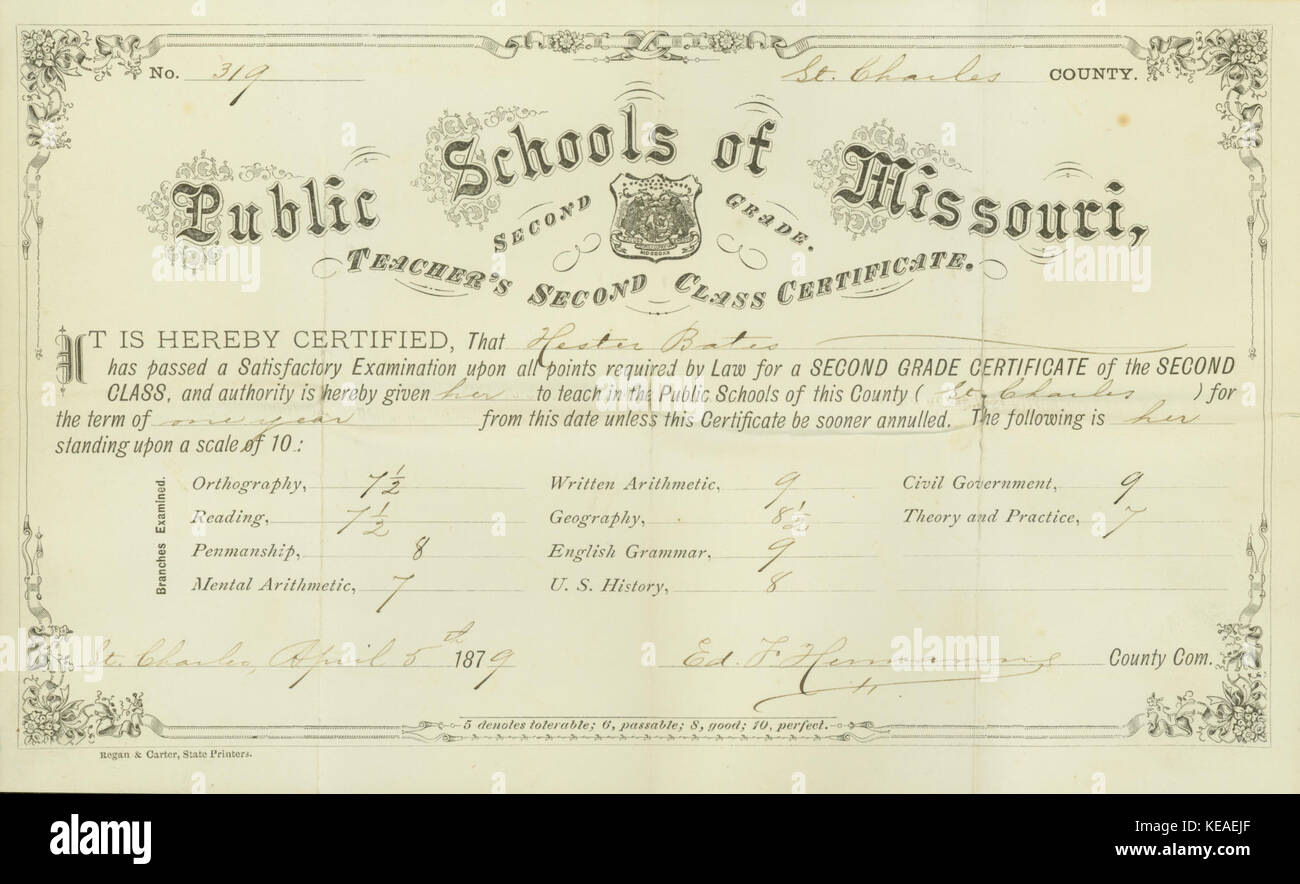 No. 319 St. Charles COUNTY.
Public Schools of Missouri,
SECOND GRADE.
TEACHER'S SECOND CLASS CERTIFICATE.
IT IS HEREBY CERTIFIED, That Hester Bates
has passed a Satisfactory Examination upon all points required by Law for a SECOND GRADE CERTIFICATE of the SECOND
CLASS, and authority is hereby given her to teach in the Public Schools of this County ( St. Charles ) for
the term of one year from this date unless this Certificate be sooner annulled. The following is her
standing upon a scale of 10:
Branches Examined.
Orthography, 7 1/2 Written Arithmetic, 9 Civil Government, 9
Reading, 7 1/2 Geography, 8 1/2 Theory and Practice, 7
Penmanship, 8 English Grammar, 9
Mental Arithmetic, 7 U. S. History, 8
St. Charles, April 5th 1879 Ed. F. County Com.
5 denotes tolerable; 6, passable; 8, good; 10, perfect.
Regan & Carter, State Printers.
alamy stock photo
KEAEJF
www.alamy.com